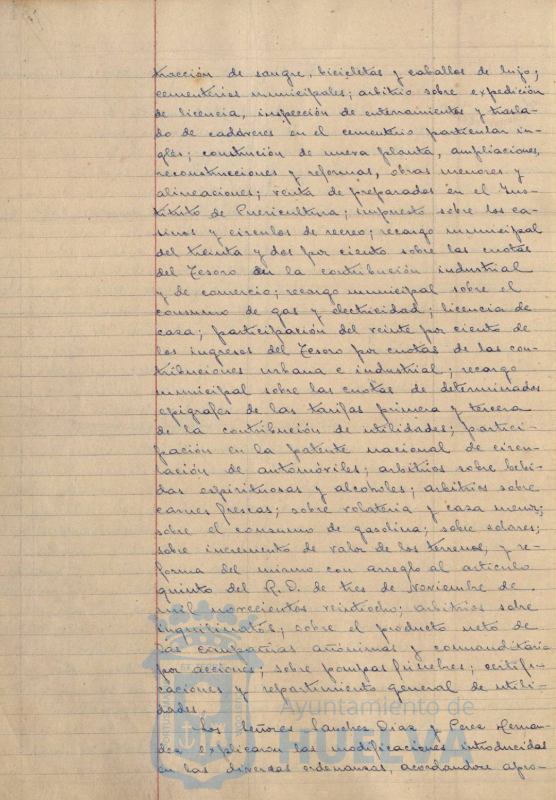 tracción de sangre, bicicletas y caballos de lujo;
cementerios municipales; arbitrio sobre expedición
de licencia, inspección de enterramientos y trasla-
do de cadáveres en el cementerio particular in-
glés; construcción de nueva planta, ampliaciones,
reconstrucciones y reformas, obras menores y
alineaciones; venta de preparados en el Ins-
tituto de Puericultura; impuesto sobre los ca-
sinos y circulos de recreo; recargo municipal
del treinta y dos por ciento sobre las cuotas
del Tesoro en la contribución industrial
y de comercio; recargo municipal sobre el
consumo de gas y electricidad; licencia de
caza; participación del veinte por ciento de
los ingresos del Tesoro por cuotas de las con-
tribuciones urbana e industrial; recargo
municipal sobre las cuotas de determinados
epigrafes de las tarifas primera y tercera
de la contribución de utilidades; partici-
pación en la patente nacional de circu-
lación de automóviles; arbitrios sobre bebi-
das espirituosas y alcoholes; arbitrios sobre
carnes frescas; sobre volateria y caza menor;
sobre el consumo de gasolina; sobre solares;
sobre incremento de valor de los terrenos, y re-
forma del mismo con arreglo al articulo
quinto del R. D. de tres de Noviembre de
mil novecientos veintiocho; arbitrios sobre
inquilinatos; sobre el producto neto de
las compañias anónimas y comanditarias
por acciones; sobre pompas fúnebres; certifi-
caciones y repartimiento general de utili-
dades.
Los Señores Sanchez Diaz y Perez Hernan-
dez explicaron las modificaciones introducidas
en las diversas ordenanzas, acordandose apro-
Ayuntamiento de
HUELVA